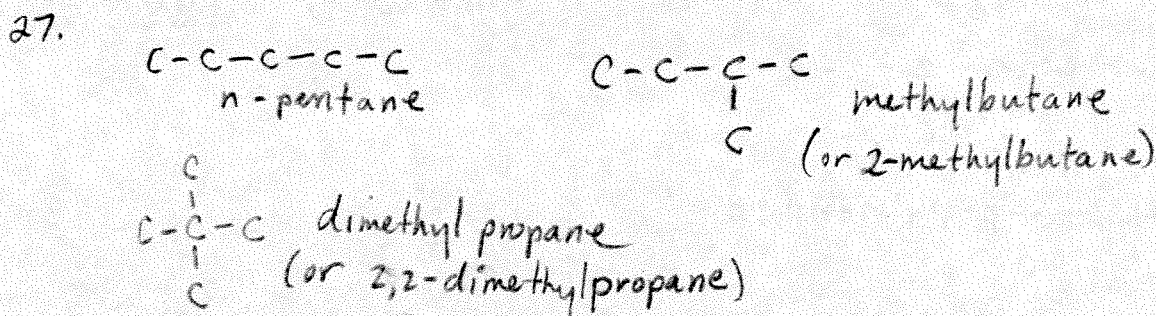 27.
C-C-C-C-C
n-pentane
C-C-C-C
C
methylbutane
(or 2-methylbutane)
C
C-C-C
C
dimethyl propane
(or 2,2-dimethylpropane)